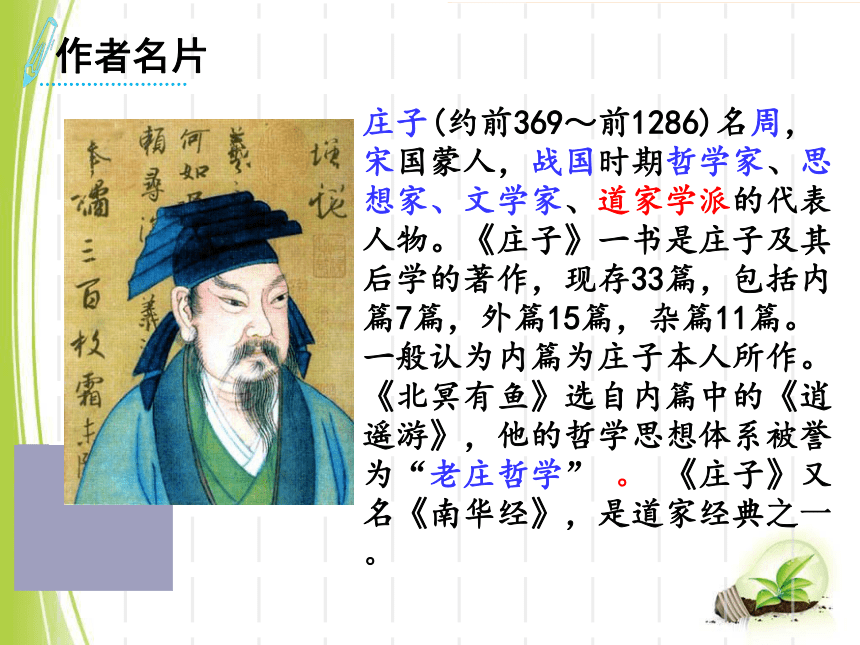 作者名片
庄子(约前369～前1286)名周，
宋国蒙人，战国时期哲学家、思
想家、文学家、道家学派的代表
人物。《庄子》一书是庄子及其
后学的著作，现存33篇，包括内
篇7篇，外篇15篇，杂篇11篇。
一般认为内篇为庄子本人所作。
《北冥有鱼》选自内篇中的《逍
遥游》，他的哲学思想体系被誉
为“老庄哲学” 。 《庄子》又
名《南华经》，是道家经典之一
。
羲
何如
賴尋
奉橘三百枚霜未